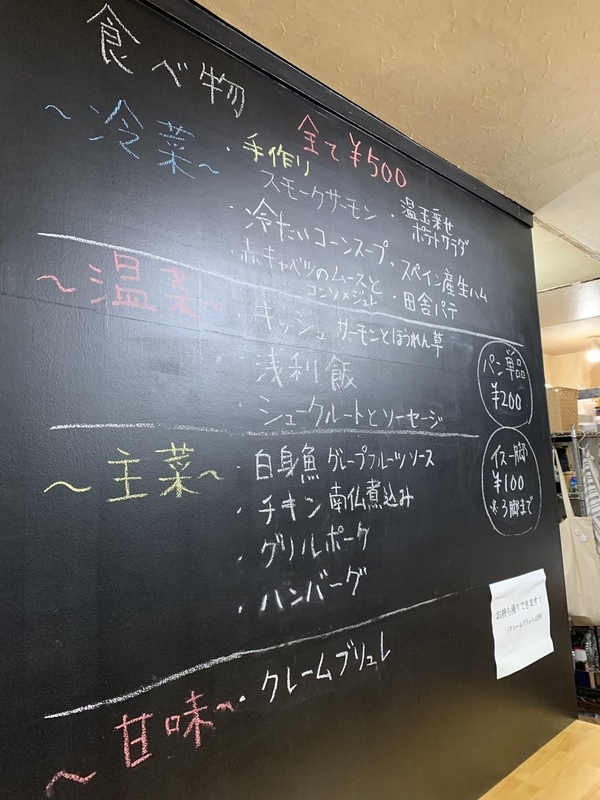 食べ物
全て¥500
～冷菜～
・手作り
スモークサーモン
・温玉乗せ
ポテトサラダ
・冷たいコーンスープ
・スペイン産生ハム
・赤キャベツのムースと
コンソメジュレ
・田舎パテ
～温菜～
・キッシュ サーモンとほうれん草
浅利飯
・シュークルートとソーセージ
パン単品
¥200
～主菜～
・白身魚 グレープフルーツソース
・チキン南仏煮込み
・グリルポーク
・ハンバーグ
イス一脚
¥100
※3脚まで
お持ち帰りできます!
(クレームブリュレ以外)
～甘味～
・クレームブリュレ